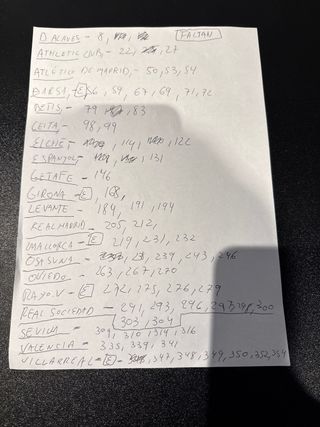 D. ALAVES - 8, FALTAN
ATHLETIC CLUB - 22, 27
ATLETICO DE MADRID, - 50, 53, 54
BARSA, - E 56, 59, 67, 69, 71, 72
BETIS - 79, 83
CELTA, - 98, 99
ELCHE - 114, 122
ESPANYOL - 131
GETAFE - 146
GIRONA - E, 168,
LEVANTE - 184, 191, 194
REAL MADRID - 205, 212,
MALLORCA - E 219, 231, 232
OSASUNA - 239, 243, 246
OVIEDO - 263, 267, 270
RAYO.V - E 272, 275, 276, 279
REAL SOCIEDAD - 291, 293, 296, 300
303, 304
SEVILLA - 309, 310, 314, 316
VALENCIA - 335, 339, 341
VILLARREAL - E - 347, 348, 349, 350, 352, 354